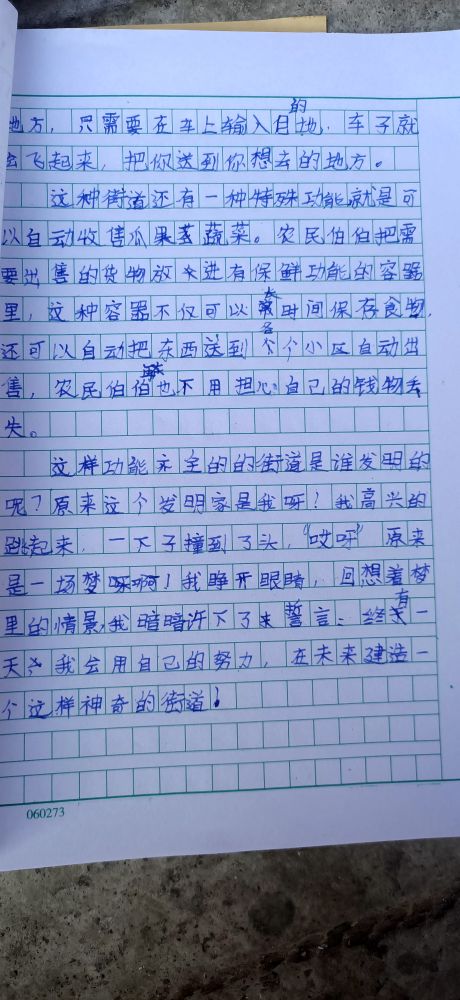 地方，只需要在车上输入目的地，车子就
会飞起来，把你送到你想去的地方。
这种街道还有一种特殊功能就是可
以自动收售瓜果蔬菜。农民伯伯把需
要出售的货物放进有保鲜功能的容器
里，这种容器不仅可以长时间保存食物，
还可以自动把东西送到各个小区自动出
售，农民伯伯也不用担心自己的钱物丢
失。
这样功能齐全的的街道是谁发明的
呢？原来这个发明家是我呀！我高兴的
跳起来，一下子撞到了头，“哎呀”原来
是一场梦啊！我睁开眼睛，回想着梦
里的情景，我暗暗许下了誓言：终有一
天，我会用自己的努力，在未来建造一
个这样神奇的街道！
060273